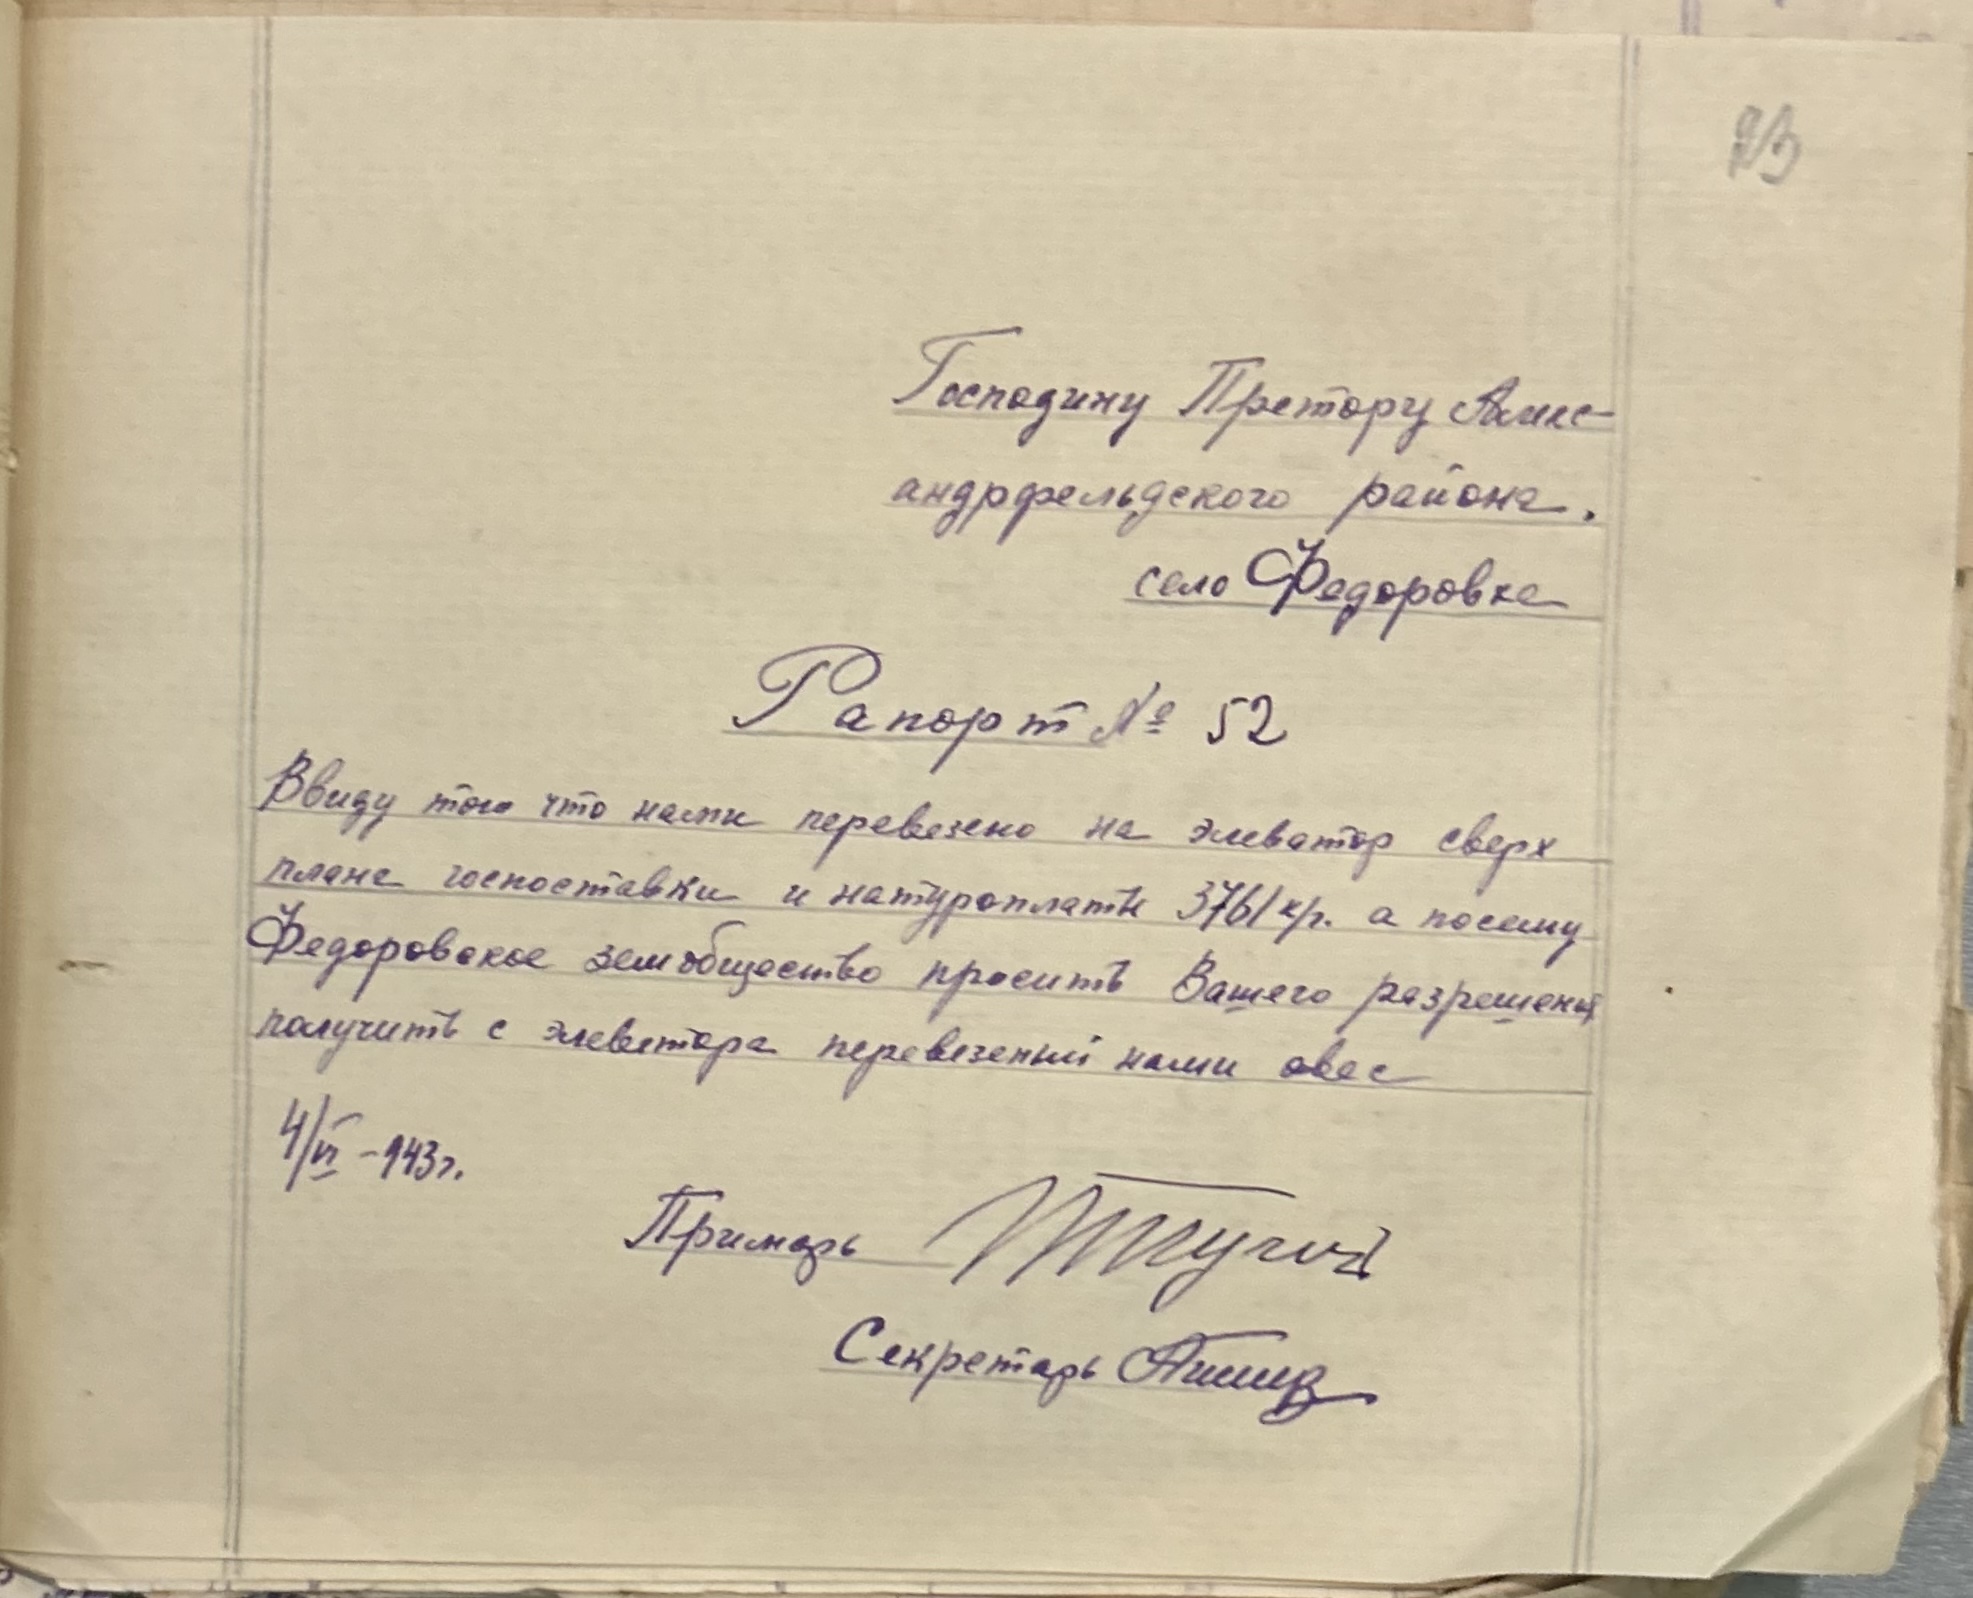 Господину Претору Алекс-
андрфельдского района.
село Федоровка
Рапорт № 52
Ввиду того что нами перевезено на элеватор сверх
плана госпоставки и натуроплаты 3761 кгр. а посему
Федоровское земобщество просить Вашего разрешения
получить с элеватора перевезеный нами овес
4/VI -943г.
Примарь
Секретарь